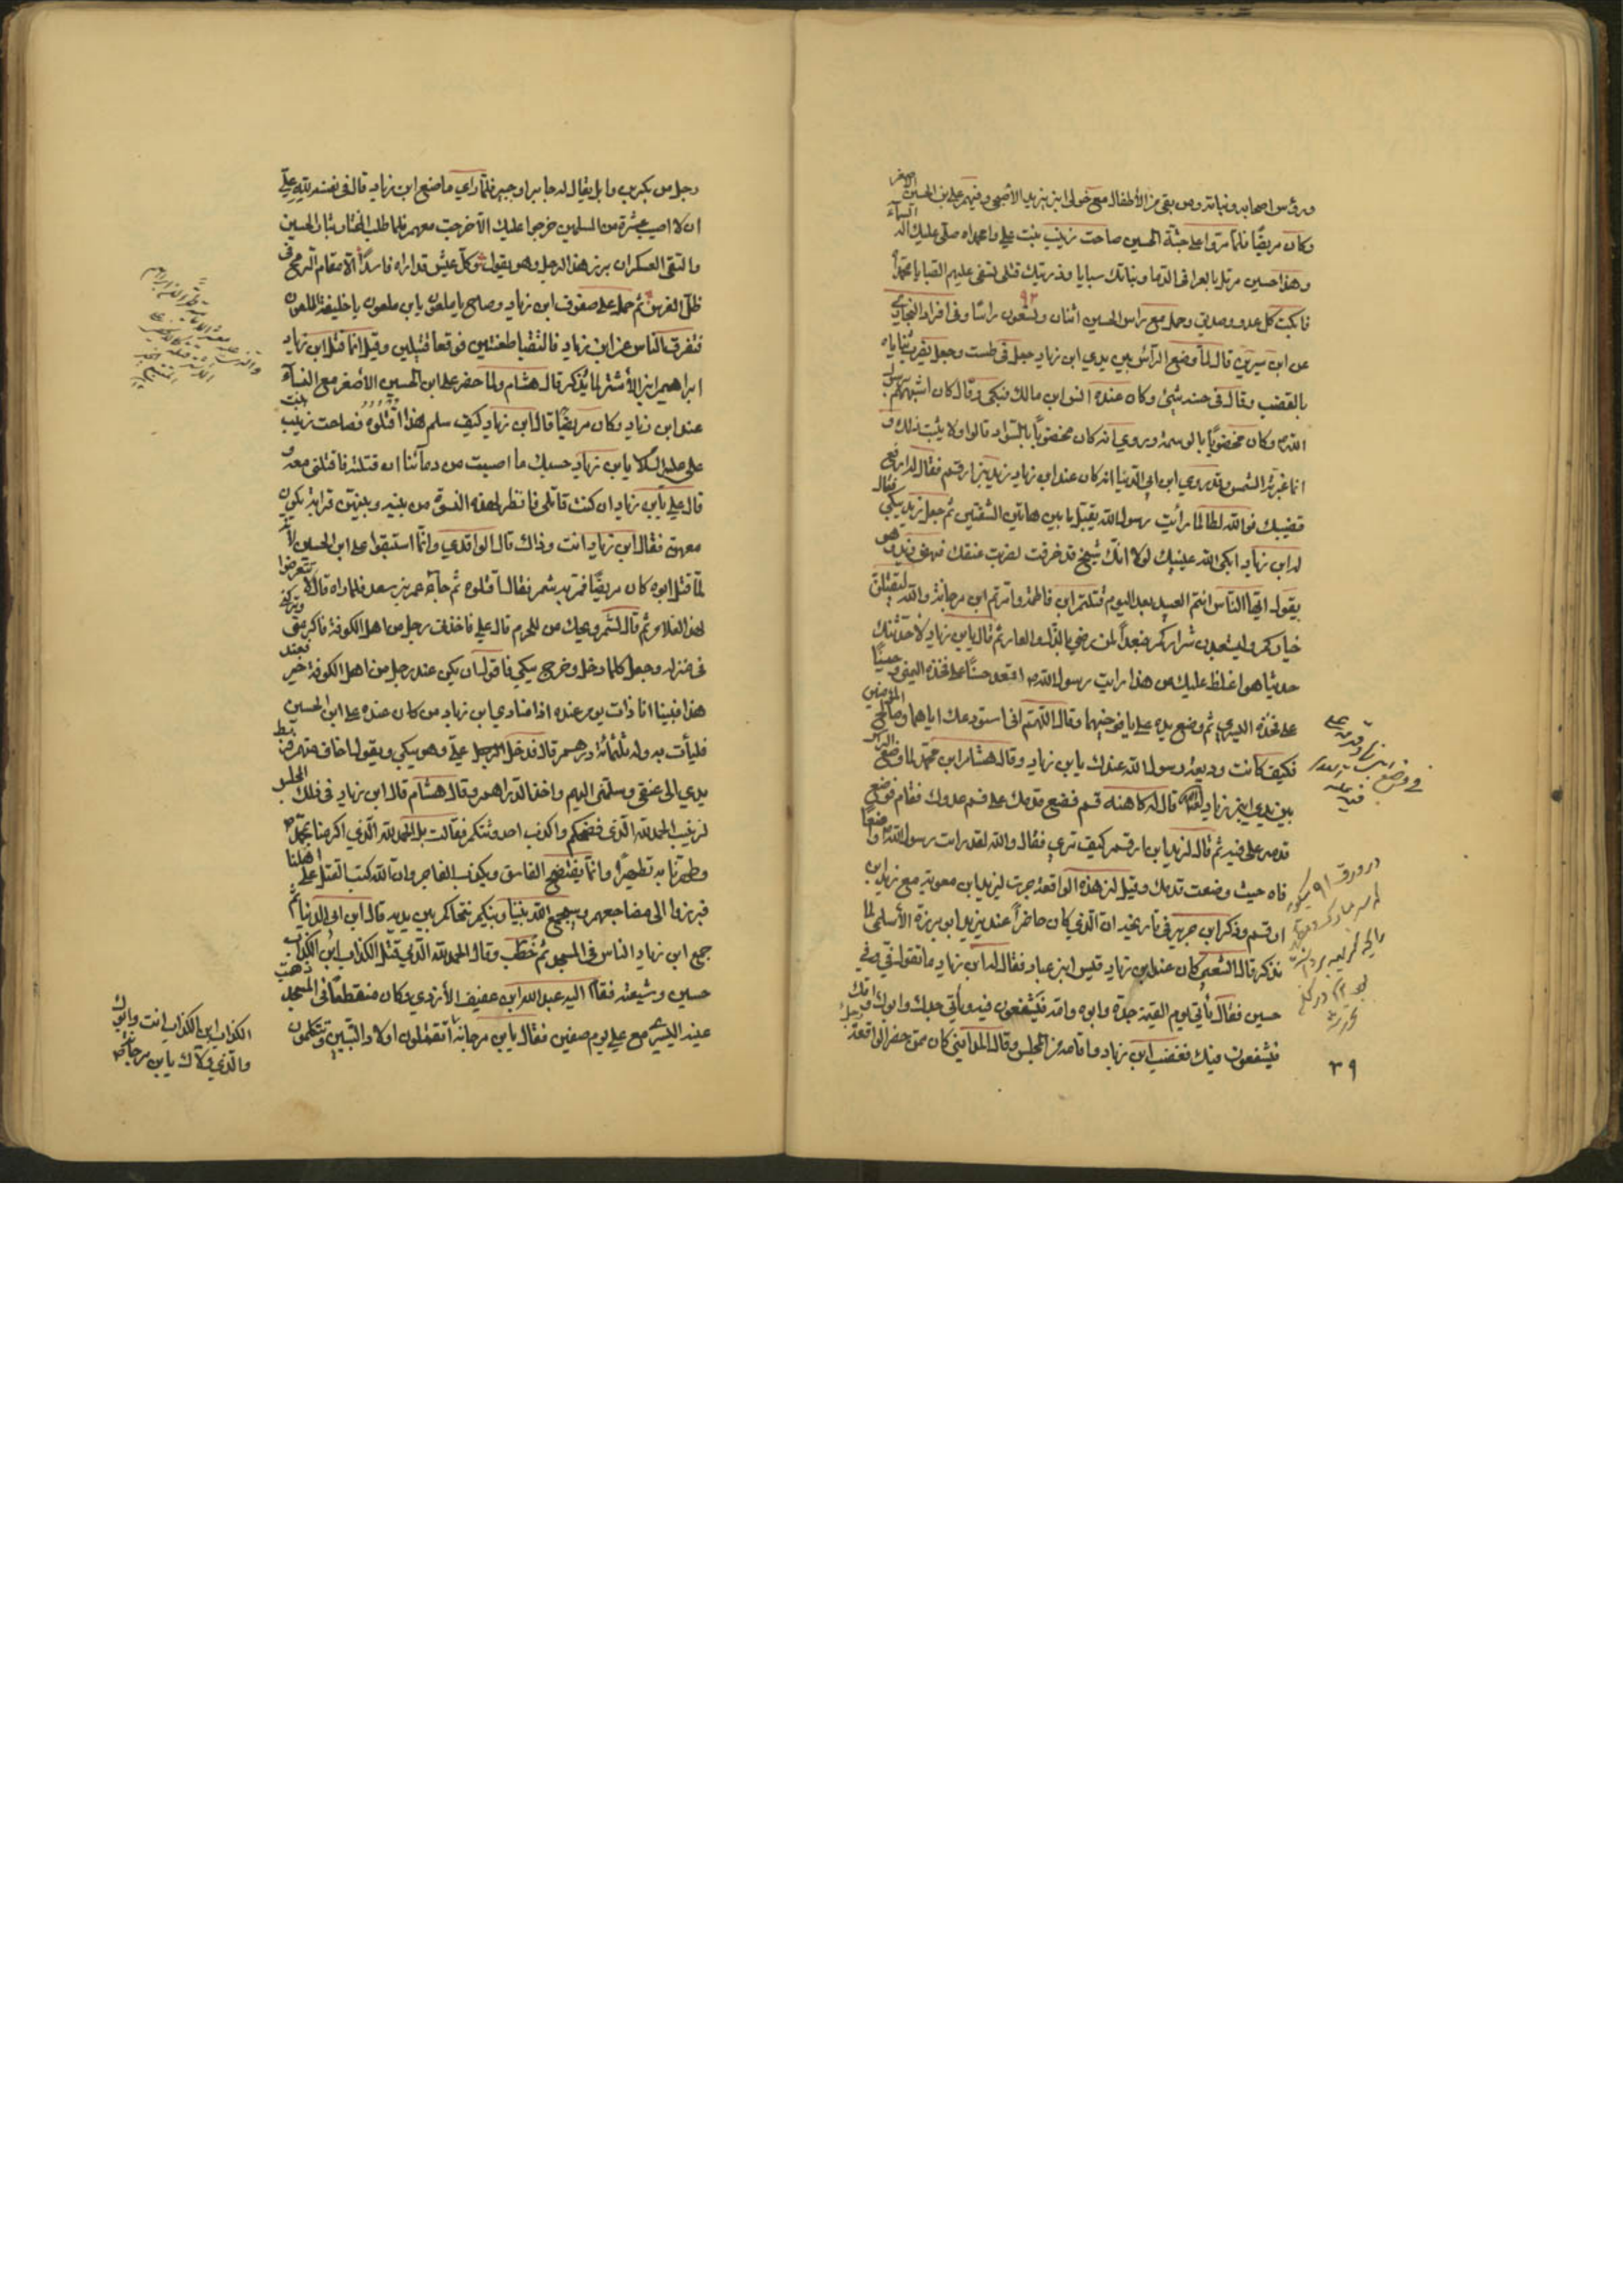 ورؤس اصحابه وبناته ومن بقى من الأطفال مع خولى ابن يزيد الأصبحى وفيهم على بن الحسين الاصغر
وكان مريضًا فلما مروا على جثة الحسين صاحت زينب بنت على وا محمداه صلى عليك اله السماء
وهذا حسين مرمل بالعرا فى الدما وبناتك سبايا وذريتك قتلى تسفى عليهم الصبا يا محمداه
فابكت كل عدو وصديق وحمل مع راس الحسين اثنان وتسعون راسًا وفى افراد البخارى
٩٢
عن ابن سيرين قال لما وضع الراس بين يدى ابن زياد جعل فى طست وجعل يضرب ثناياه
بالقضيب وقال فى حسنه شيئ وكان عنده انس ابن مالك فبكى وقال كان اشبههم برسول
الله وكان مخضوبًا بالوسمة وروي انه كان مخضوبًا بالسواد قالوا ولا يثبت ذلك و
انما غيرته الشمس وقد روى ابن ابى الدنيا انه كان عند ابن زياد زيد بن ارقم فقال له ارفع
قضيبك فو الله لطالما رأيت رسول الله يقبل ما بين هاتين الشفتين ثم جعل زيد يبكى فقال
له ابن زياد ابكى الله عينيك لولا انك شيخ قد خرفت لضربت عنقك فنهض زيد وهو
يقول ايها الناس انتم العبيد بعد اليوم قتلتم ابن فاطمة وامرتم ابن مرجانة والله ليقتلن
خياركم وليستعبدن شراركم فبعدًا لمن رضى بالذل والعار ثم قال يا ابن زياد لاحدثنك
حديثا هو اغلظ عليك من هذا رايت رسول الله اقعد حسنًا على فخذه اليمنى وحسينًا
على فخذه اليسرى ثم وضع يده على يافوخيهما وقال اللهم انى استودعك اياهما وصالح المؤمنين
فكيف كانت وديعة رسول الله عندك يا ابن زياد وقال هشام ابن محمد لما وضع الراس
بين يدى ابن زياد قال له كاهنه قم فضع قدمك على فم عدوك فقام فوضع
قدمه على فيه ثم قال لزيد ابن ارقم كيف ترى فقال والله لقد رايت رسول الله واضعًا
فاه حيث وضعت قدمك وقيل ان هذه الواقعة جرت ليزيد ابن معوية مع زيد ابن
ارقم وذكر ابن جرير فى تاريخه ان الذى كان حاضراً عند يزيد ابو برزة الأسلمى لما
نذكر قال الشعبى كان عند ابن زياد قيس ابن عباد فقال له ابن زياد ما تقول فى وفى
حسين فقال يأتى يوم القيمة جده وابوه وامه فيشفعون فيه ويأتى جدك وابوك وامك
فيشفعون فيك فغضب ابن زياد واقامه من المجلس وقال المدايني كان ممن حضر الواقعة رجل
٣٩
رجل من بكر بن وايل يقال له جابر او جبير فلما راى ما صنع ابن زياد قال فى نفسه لله على
ان لا اصيب عشرة من المسلمين خرجوا عليك الا خرجت معهم فلما طلب المختار بثار الحسين
والتقى العسكران برز هذا الرجل وهو يقول وكل عيش قد اراه فاسدًا الا مقام الرمح فى
ظل الفرس ثم حمل على صفوف ابن زياد وصاح يا ملعون يا ابن ملعون يا خليفة الملعون
فتفرق الناس عن ابن زياد فالتقيا طعنتين فوقعا قتيلين وقيل انما قتل ابن زياد
ابراهيم ابن الأشتر لما يذكر قال هشام ولما حضر على ابن الحسين الأصغر مع النساء
عند ابن زياد وكان مريضًا قال ابن زياد كيف سلم هذا اقتلوه فصاحت زينب بنت
على عليه السلام يا ابن زياد حسبك ما اصبت من دمائنا ان قتلته فاقتلنى معه و
قال على يا ابن زياد ان كنت قاتلى فانظر لهذه النسوة من بينه وبينهن قرابة يكون
معهن فقال ابن زياد انت وذاك قال الواقدى وانما استبقوا على ابن الحسين لأنه
لما قتل ابوه كان مريضًا فمر به شمر فقال اقتلوه ثم جاء عمر بن سعد فلما راه قال لا تتعرضوا
لهذا الغلام ثم قال لشمر ويحك من للحرم قال على فاخذنى رجل من اهل الكوفة فاكرمنى وتركنى
فى منزله وجعل كلما دخل وخرج يبكى فاقول ان يكن عند رجل من اهل الكوفة خير فعند
هذا فبينا انا ذات يوم عنده اذا منادى ابن زياد من كان عنده على ابن الحسين
فليأت به وله ثلثمائة درهم قال فدخل الرجل على وهو يبكى ويقول اخاف منهم فربط
يدى الى عنقى وسلمنى اليهم واخذ الدراهم وقال هشام قال ابن زياد فى ذلك المجلس
لزينب الحمد لله الذى فضحكم واكذب احدوثتكم فقالت بل الحمد لله الذى اكرمنا بمحمد
وطهرنا به تطهيرًا وانما يفتضح الفاسق ويكذب الفاجر وان الله كتب القتل على اهلنا
فبرزوا الى مضاجعهم وسيجمع الله بيننا وبينكم نتحاكم بين يديه قال ابن ابى الدنيا ثم
جمع ابن زياد الناس فى المسجد ثم خطب وقال الحمد لله الذى قتل الكذاب ابن الكذاب
حسين وشيعته فقام اليه عبد الله ابن عفيف الأزدى وكان منقطعًا فى المسجد ذهبت
عينه اليسرى مع على يوم صفين فقال يا ابن مرجانة اتقتلون اولاد النبيين وتتكلمون
الكذاب ابن الكذاب انت وابوك
والذى ولاك يا ابن مرجانة